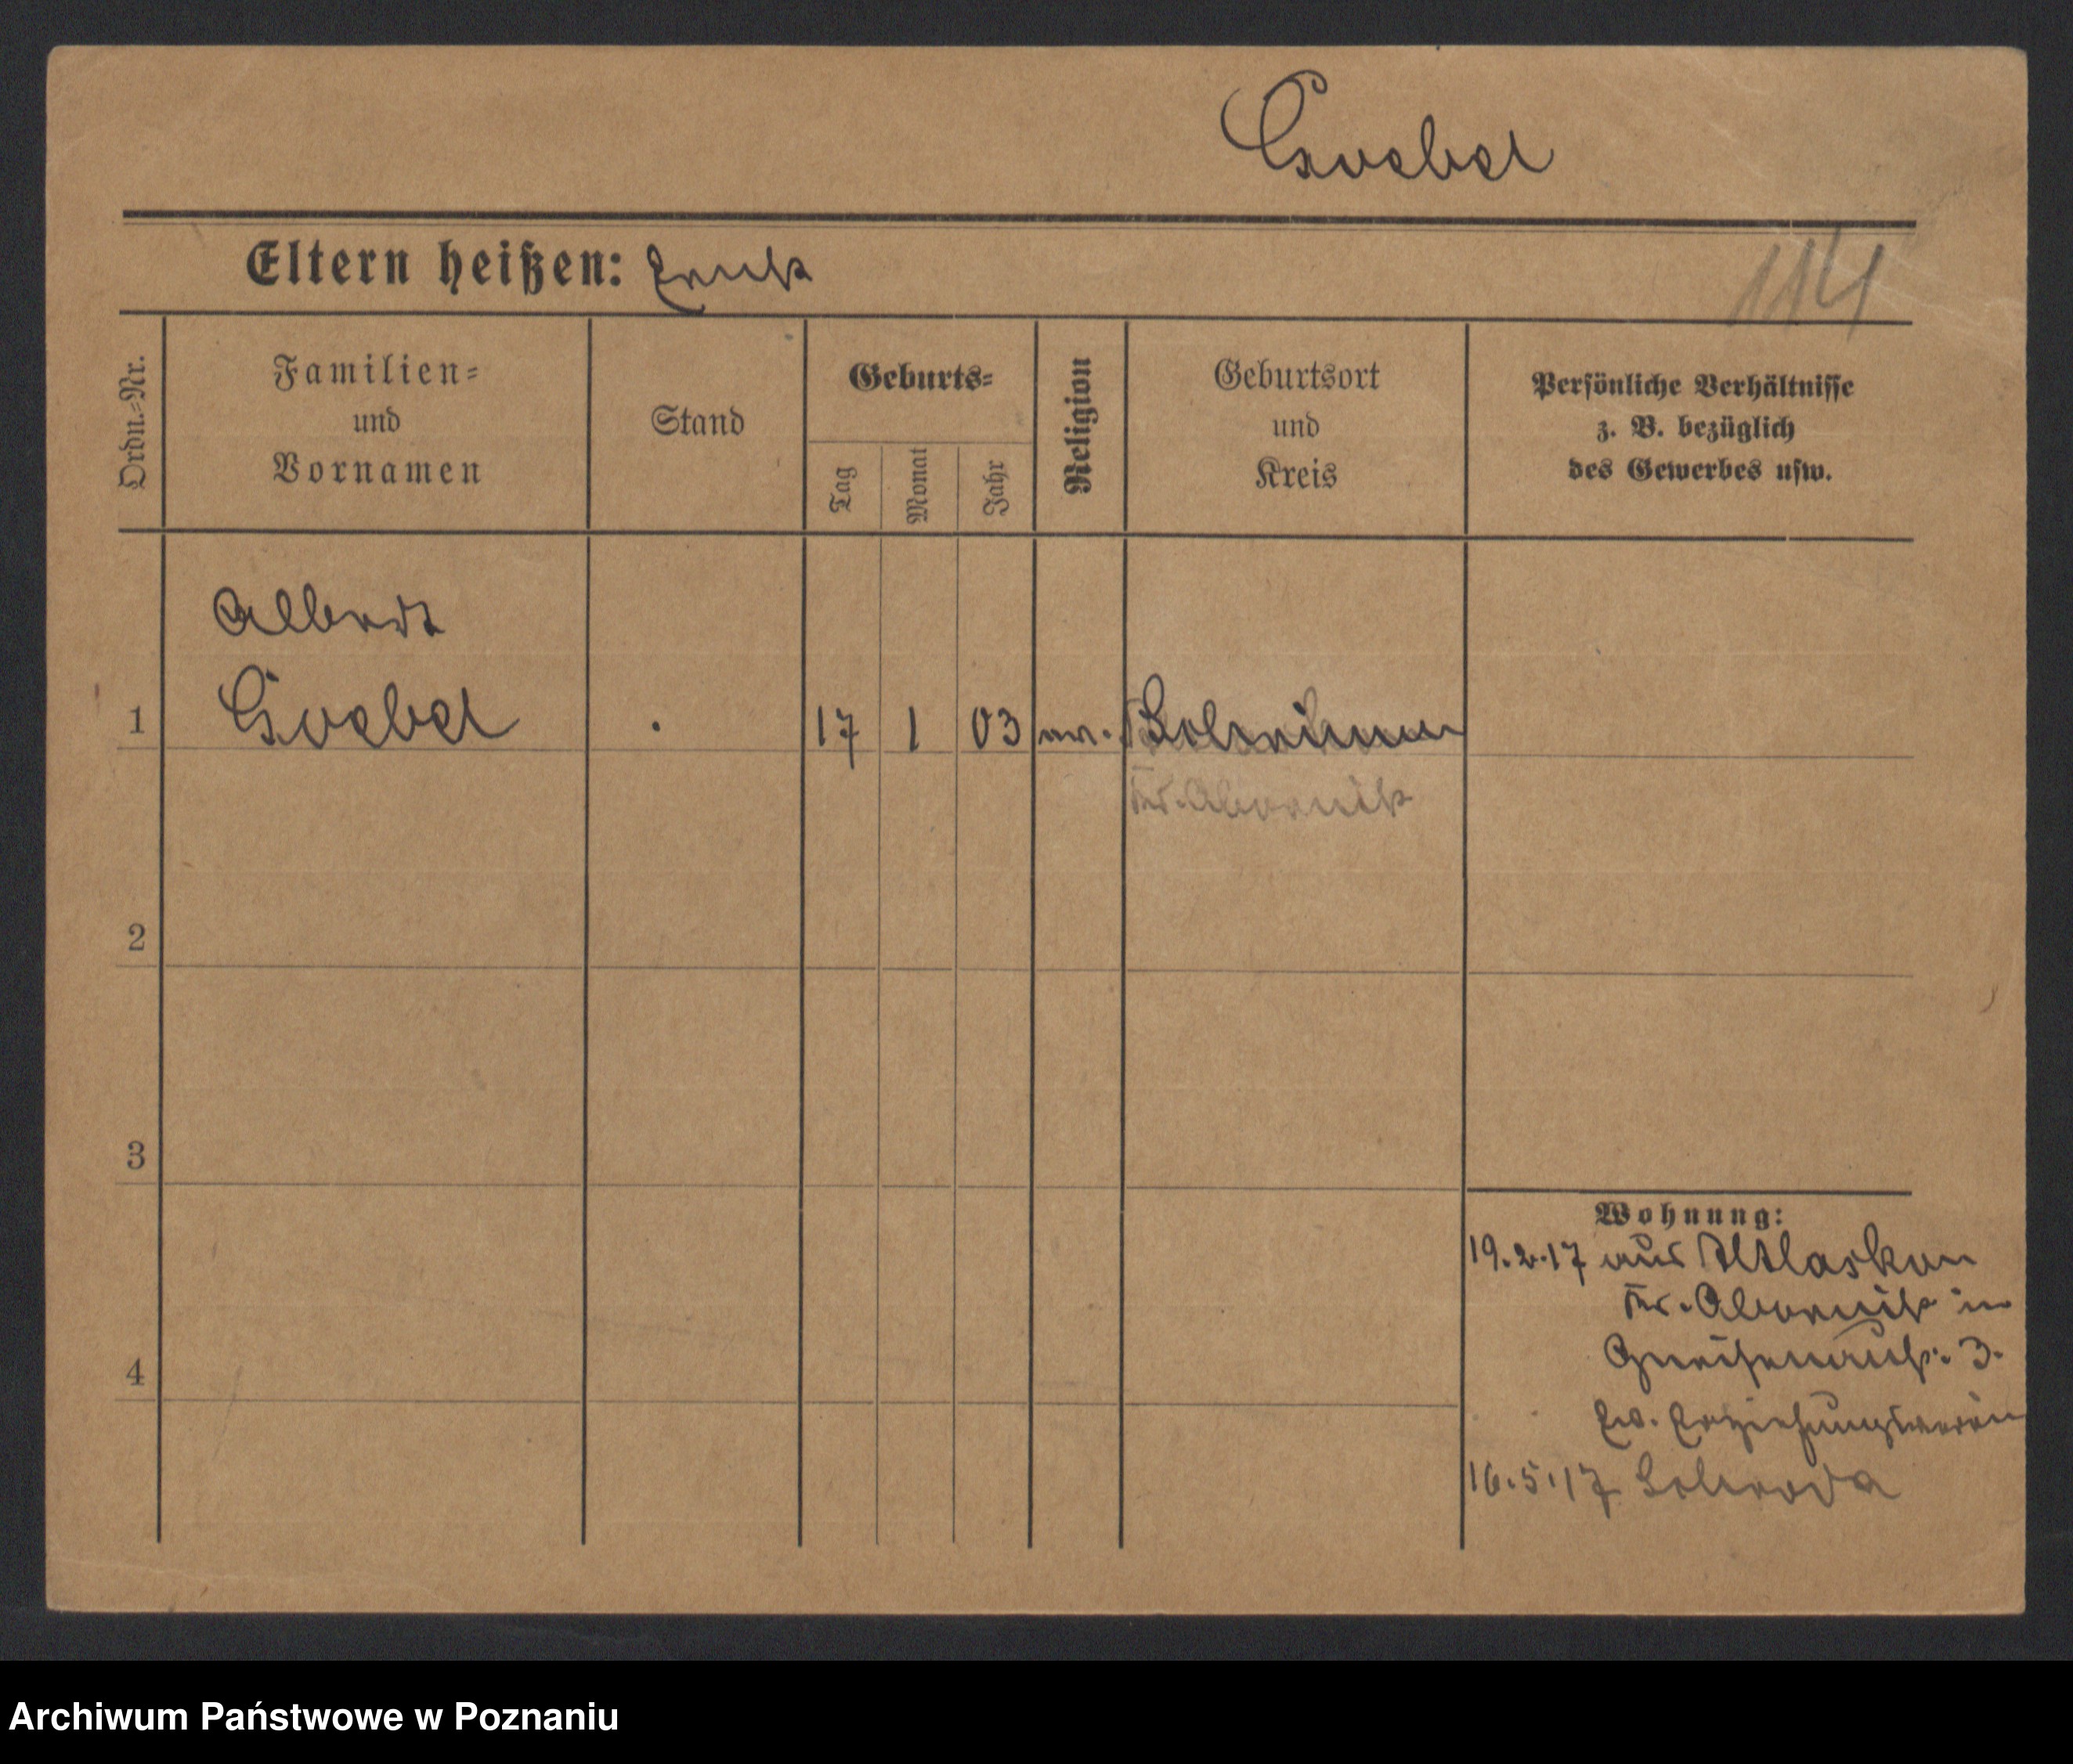 Goebel
Eltern heißen: Ernst
114
Ordn.=Nr.
Familien=
und
Vornamen
Stand
Geburts=
Tag
Monat
Jahr
Religion
Geburtsort
und
Kreis
Persönliche Verhältnisse
z. B. bezüglich
des Gewerbes usw.
Albert
1 Goebel 17 1 03 ev.
Kr. Obornik
2
3
4
Wohnung:
19.2.17 aus
Kr. Obornik in
Gneisenaustr. 3.
Ev. Erziehungsverein
16.5.17
Archiwum Państwowe w Poznaniu